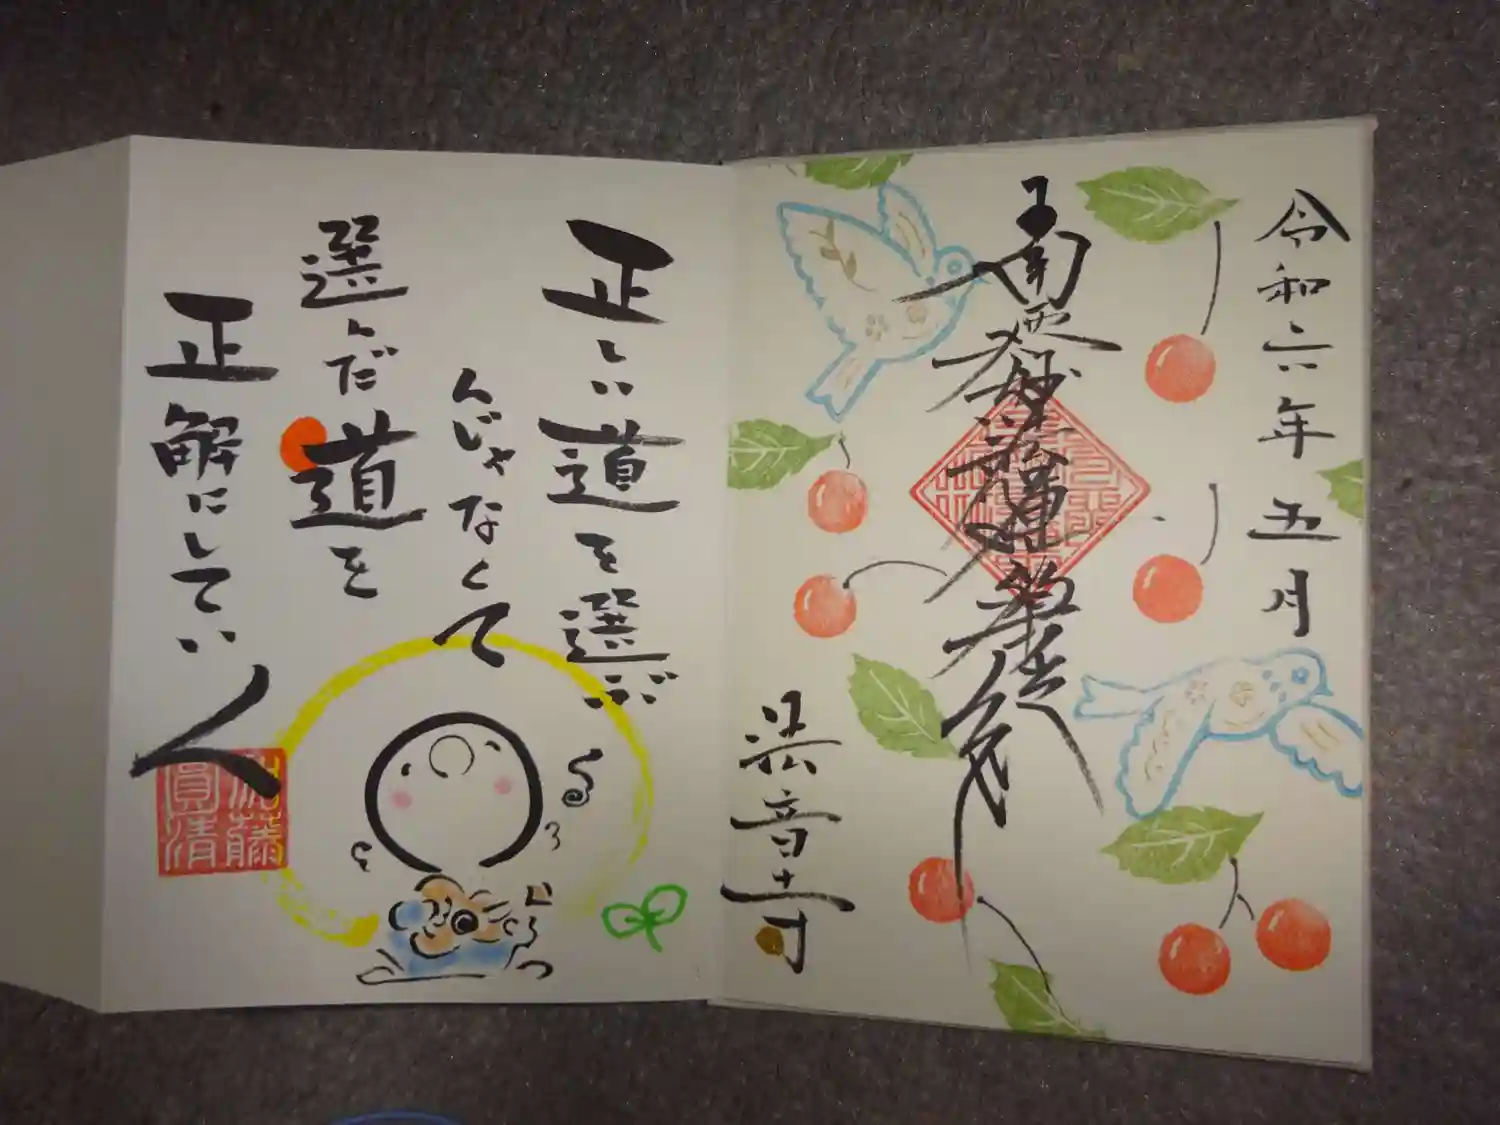 令和六年 五月
南無妙法蓮華経
法音寺
正しい道を選ぶ
んじゃなくて
選んだ道を
正解にしていく
加藤
圓清